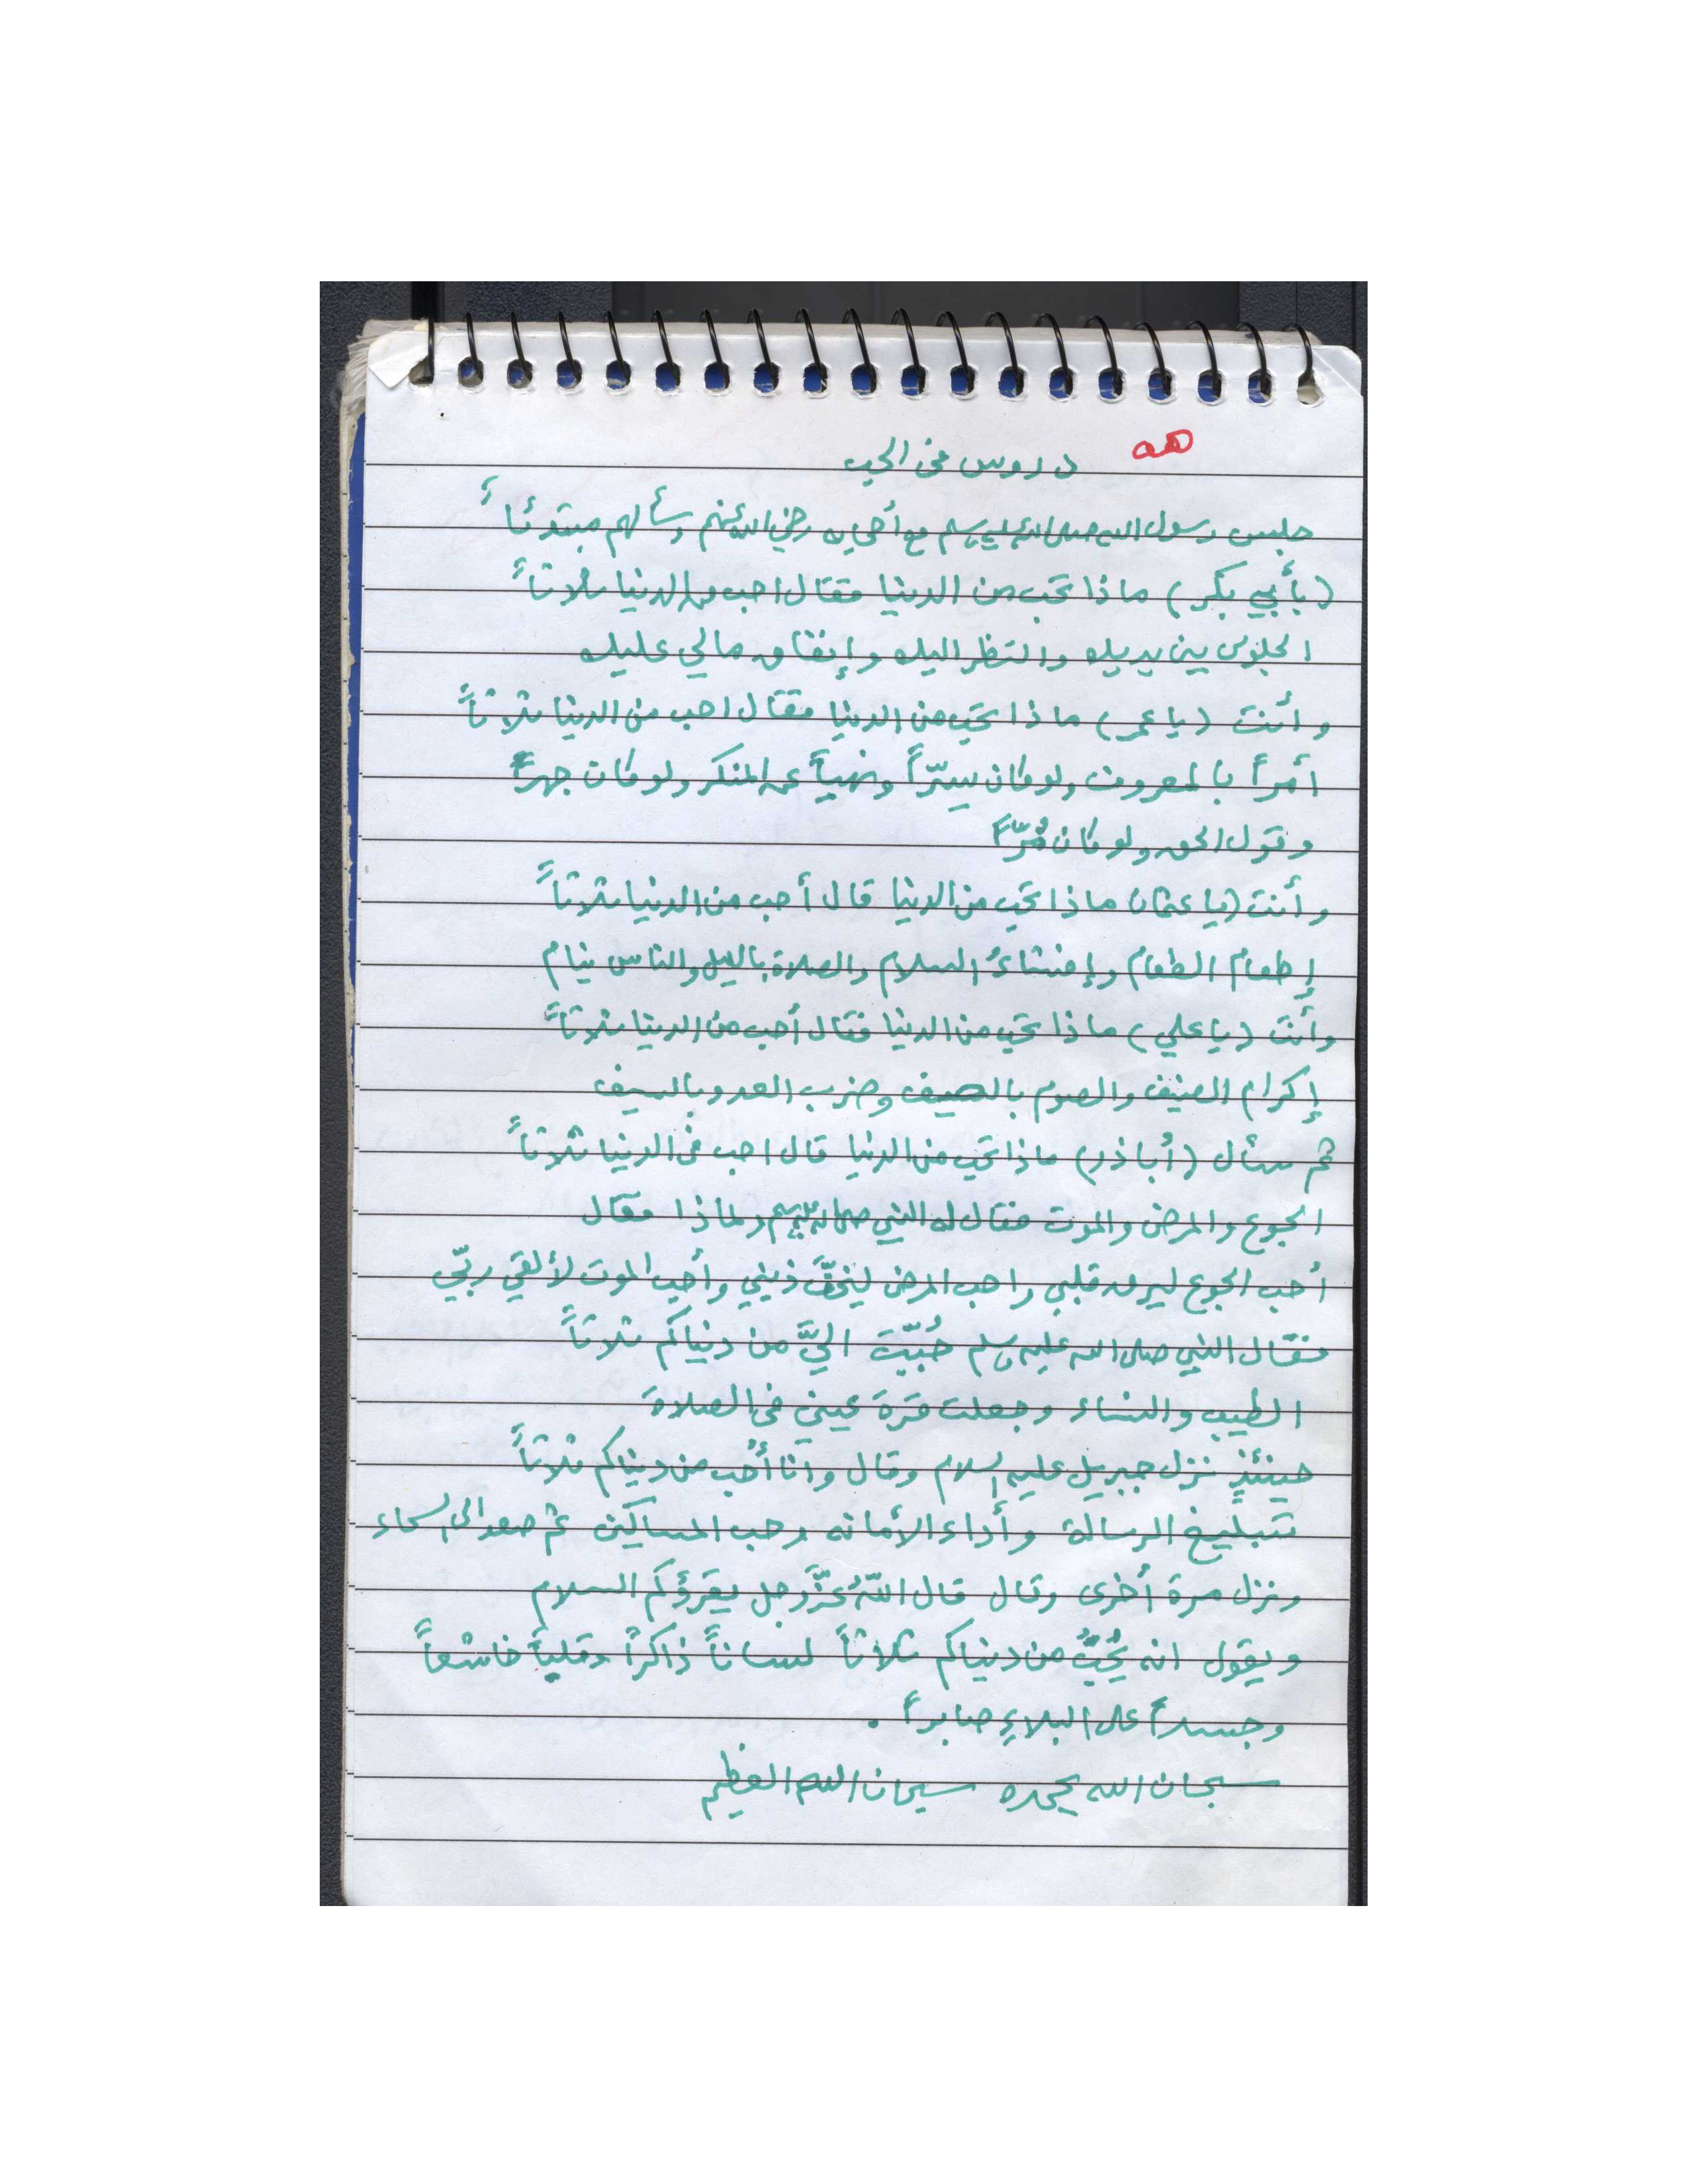 دروس في الحب
جلس رسول الله صلى الله عليه وسلم مع أصحابه رضي الله عنهم وسألهم مبتدئاً
(بأبي بكر) ماذا تحب من الدنيا فقال احب من الدنيا ثلاثاً
الجلوس بين يديك والنظر اليك وإنفاق مالي عليك
وأنت (يا عمر) ماذا تحب من الدنيا فقال احب من الدنيا ثلاثاً
أمراً بالمعروف ولو كان سِرّاً ونهياً عن المنكر ولو كان جهراً
وقول الحق ولو كان مُرّاً
وأنت (يا عثمان ماذا تحب من الدنيا قال أحب من الدنيا ثلاثاً
إطعام الطعام وإفشاءُ السلام والصلاة بالليل والناس ينام
وأنت (يا علي) ماذا تحب من الدنيا فقال أحب من الدنيا ثلاثاً
إكرام الضيف والصوم بالصيف وضرب العدو بالسيف
ثم سأل (أباذر) ماذا تحب من الدنيا قال احب في الدنيا ثلاثاً
الجوع والمرض والموت فقال له النبي صلى الله عليه وسلم ولماذا فقال
أحب الجوع ليرق قلبي واحب المرض ليخفَّ ذنبي وأحب الموت لألقي ربّي
فقال النبي صلى الله عليه وسلم حُبّبَت اليَّ من دنياكم ثلاثاً
الطيب والنساء وجعلت قرة عيني في الصلاة
حينئذٍ نزل جبريل عليه السلام وقال وأنا أُحب من دنياكم ثلاثاً
تبليغ الرسالة وأداء الأمانه وحب المساكين ثم صعد الى السماء
ونزل مرة أخرى وقال قال اللّهُ عزَّوجل يقرؤكم السلام
ويقول انه يُحِبُّ من دنياكم ثلاثاً لساناً ذاكراً وقلباً خاشعاً
وجسداً على البلاءِ صابراً .
سبحان الله بحمده سبحان الله العظيم